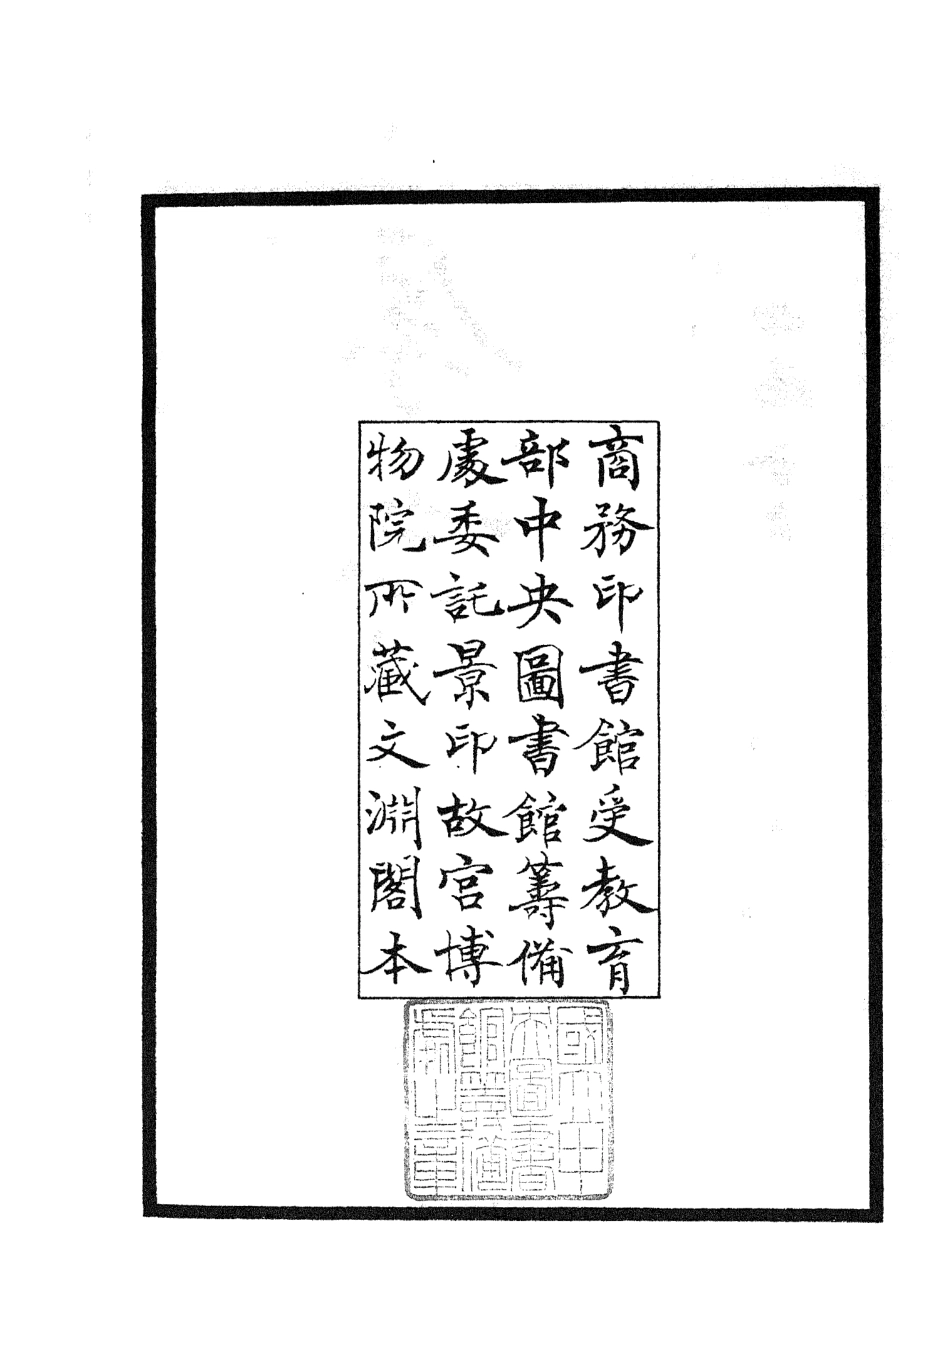 商務印書館受教育
部中央圖書館籌備
處委託景印故宮博
物院所藏文淵閣本
國立中
央圖書
館籌備
處所之章